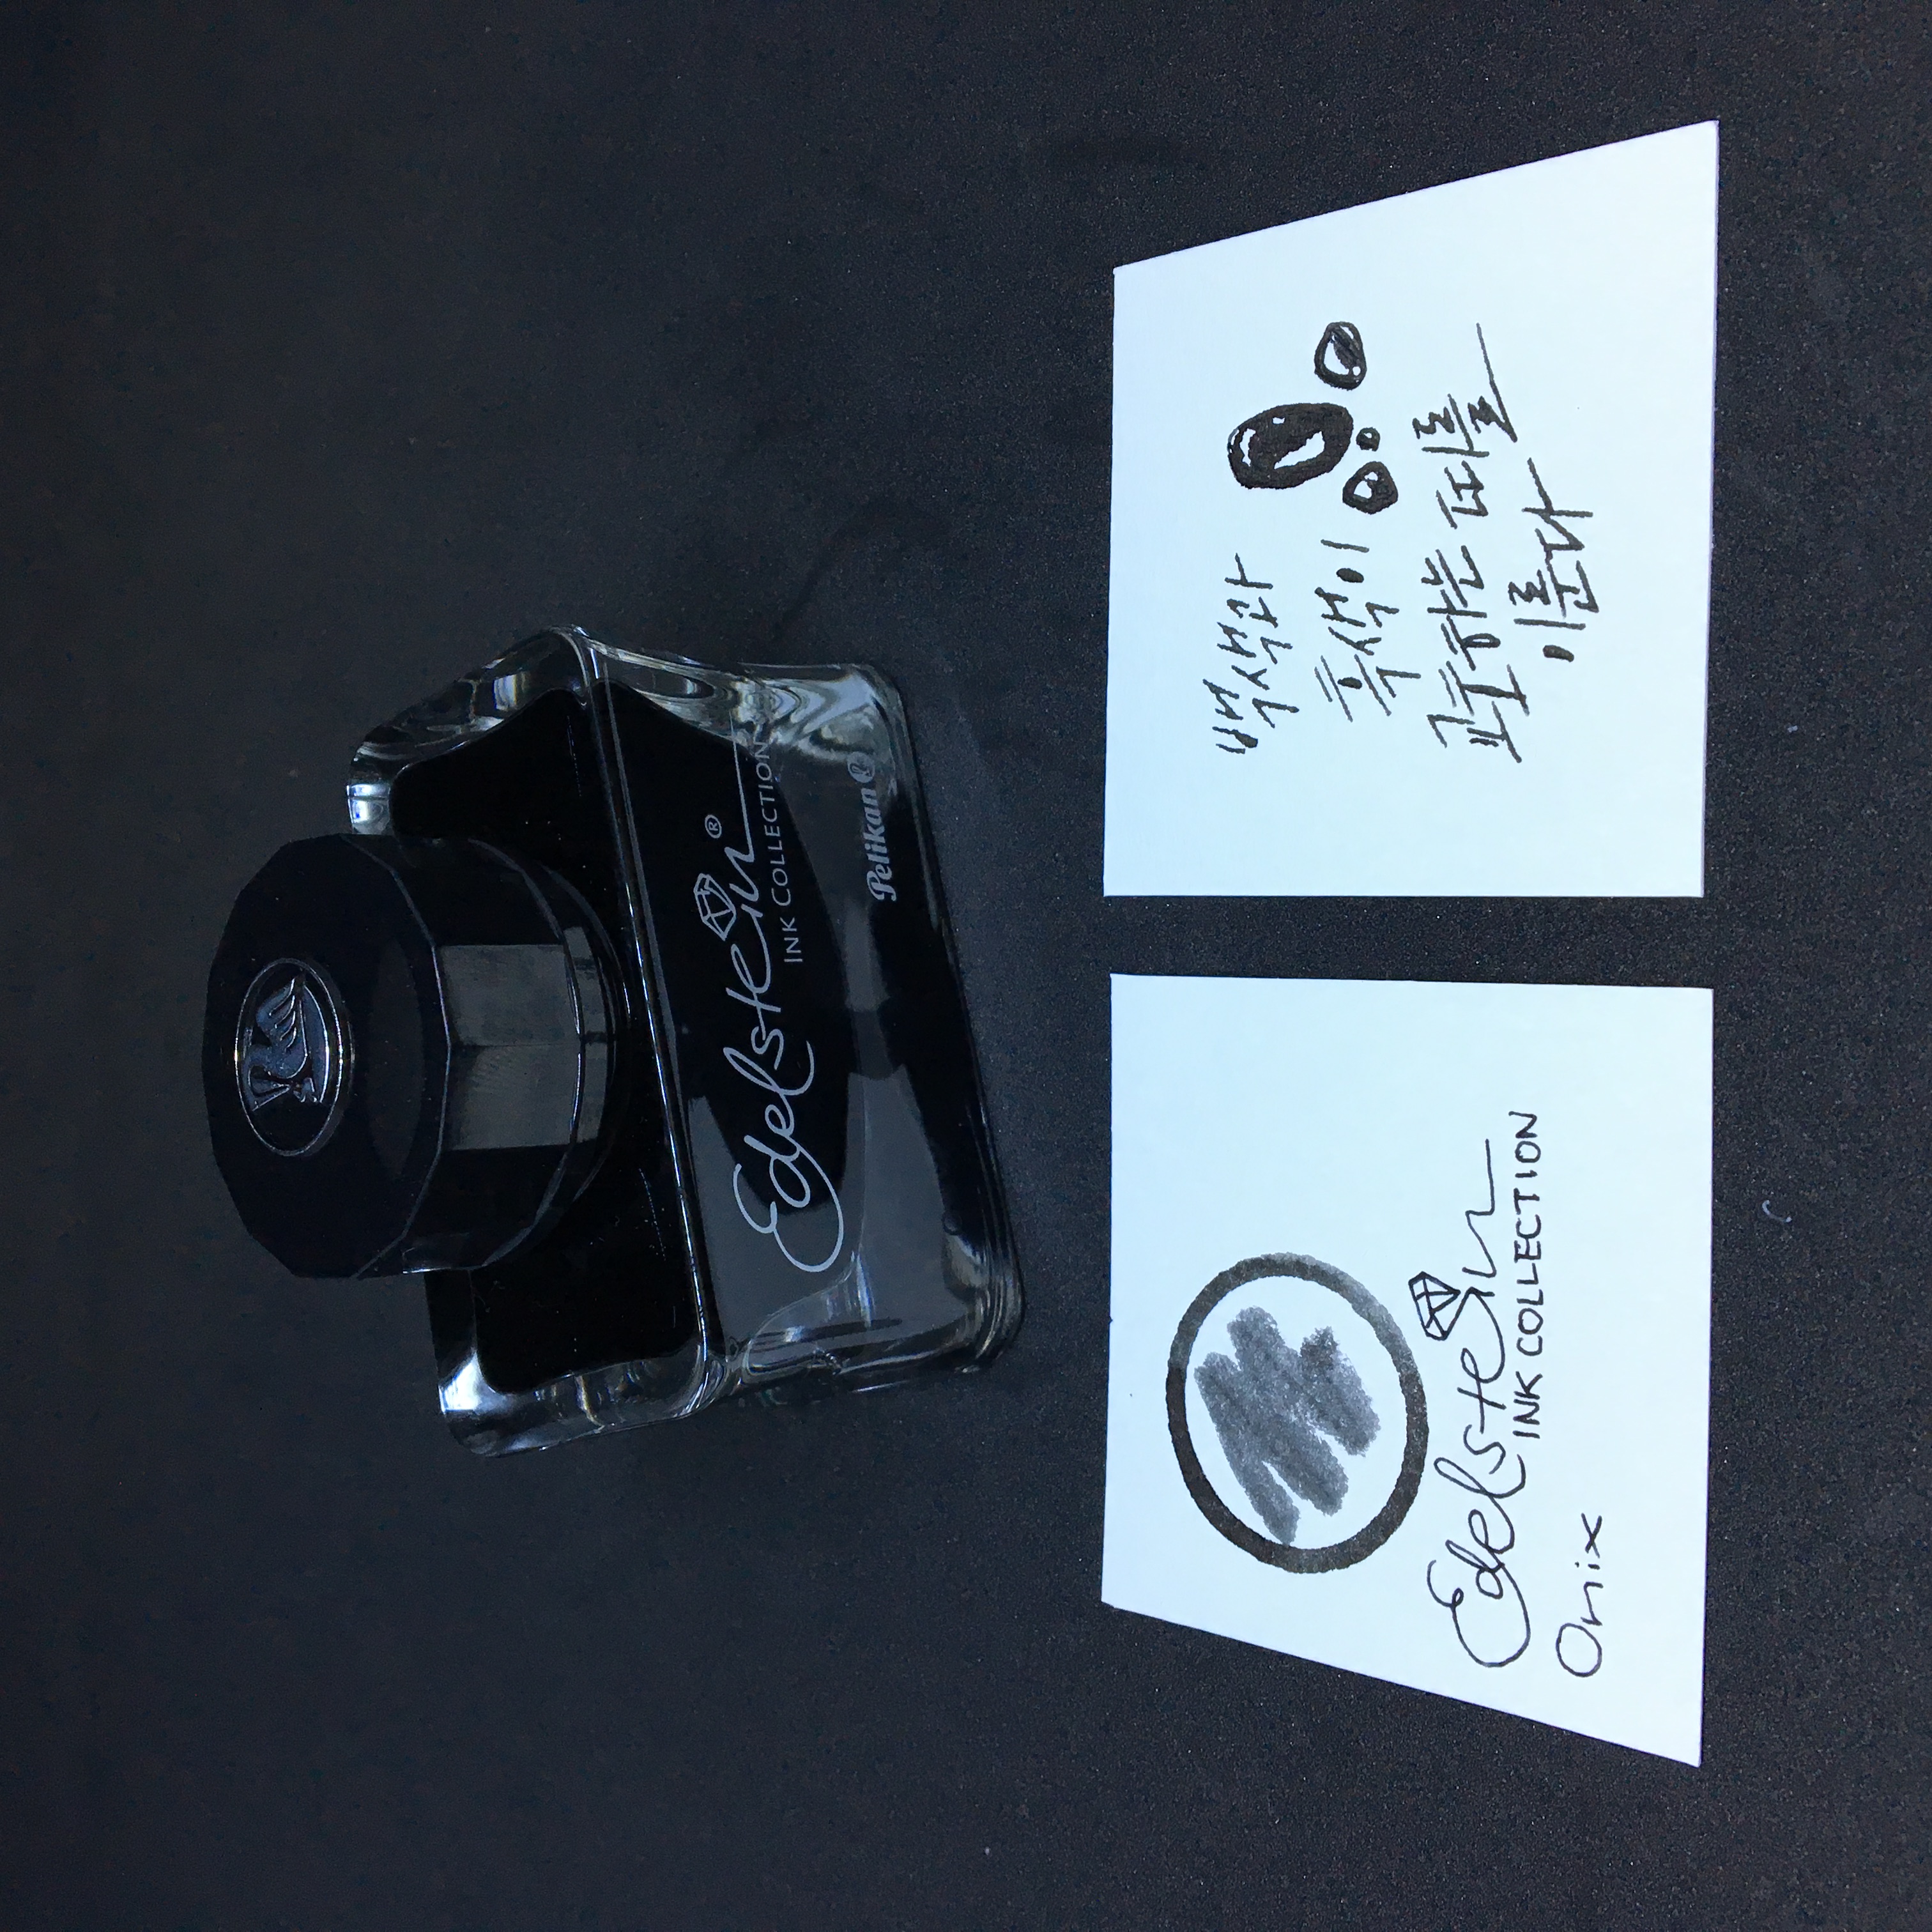 Edelstein®
INK COLLECTION
Pelikan
Edelstein
INK COLLECTION
Onix
백색과
흑색이
교호하는 띠를
이룬다